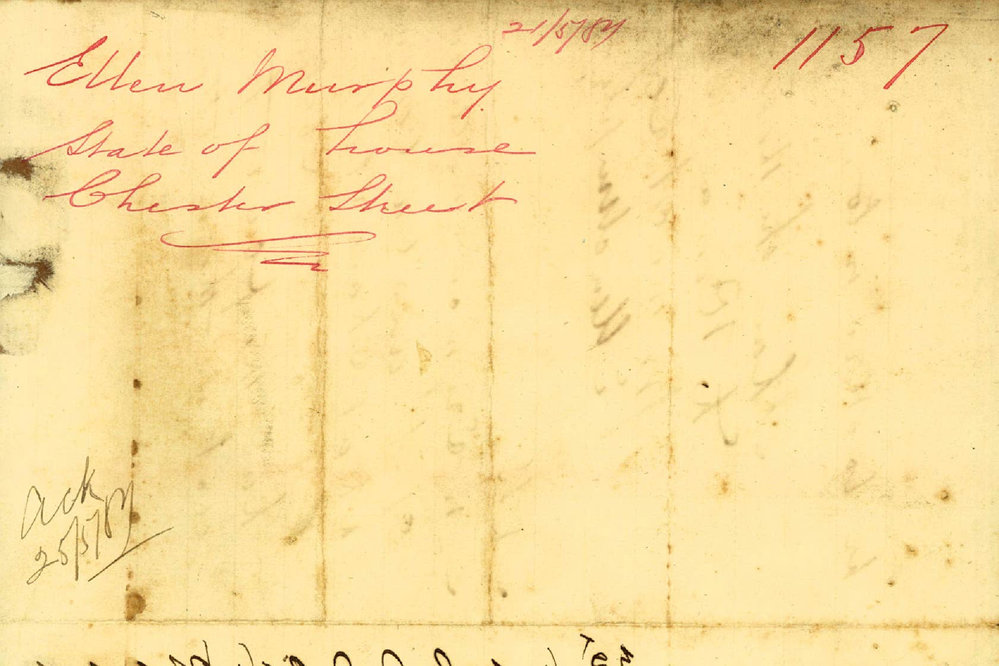 21/5/87
1157
Ellen Murphy
State of house
Chester Street
Ack
25/5/87